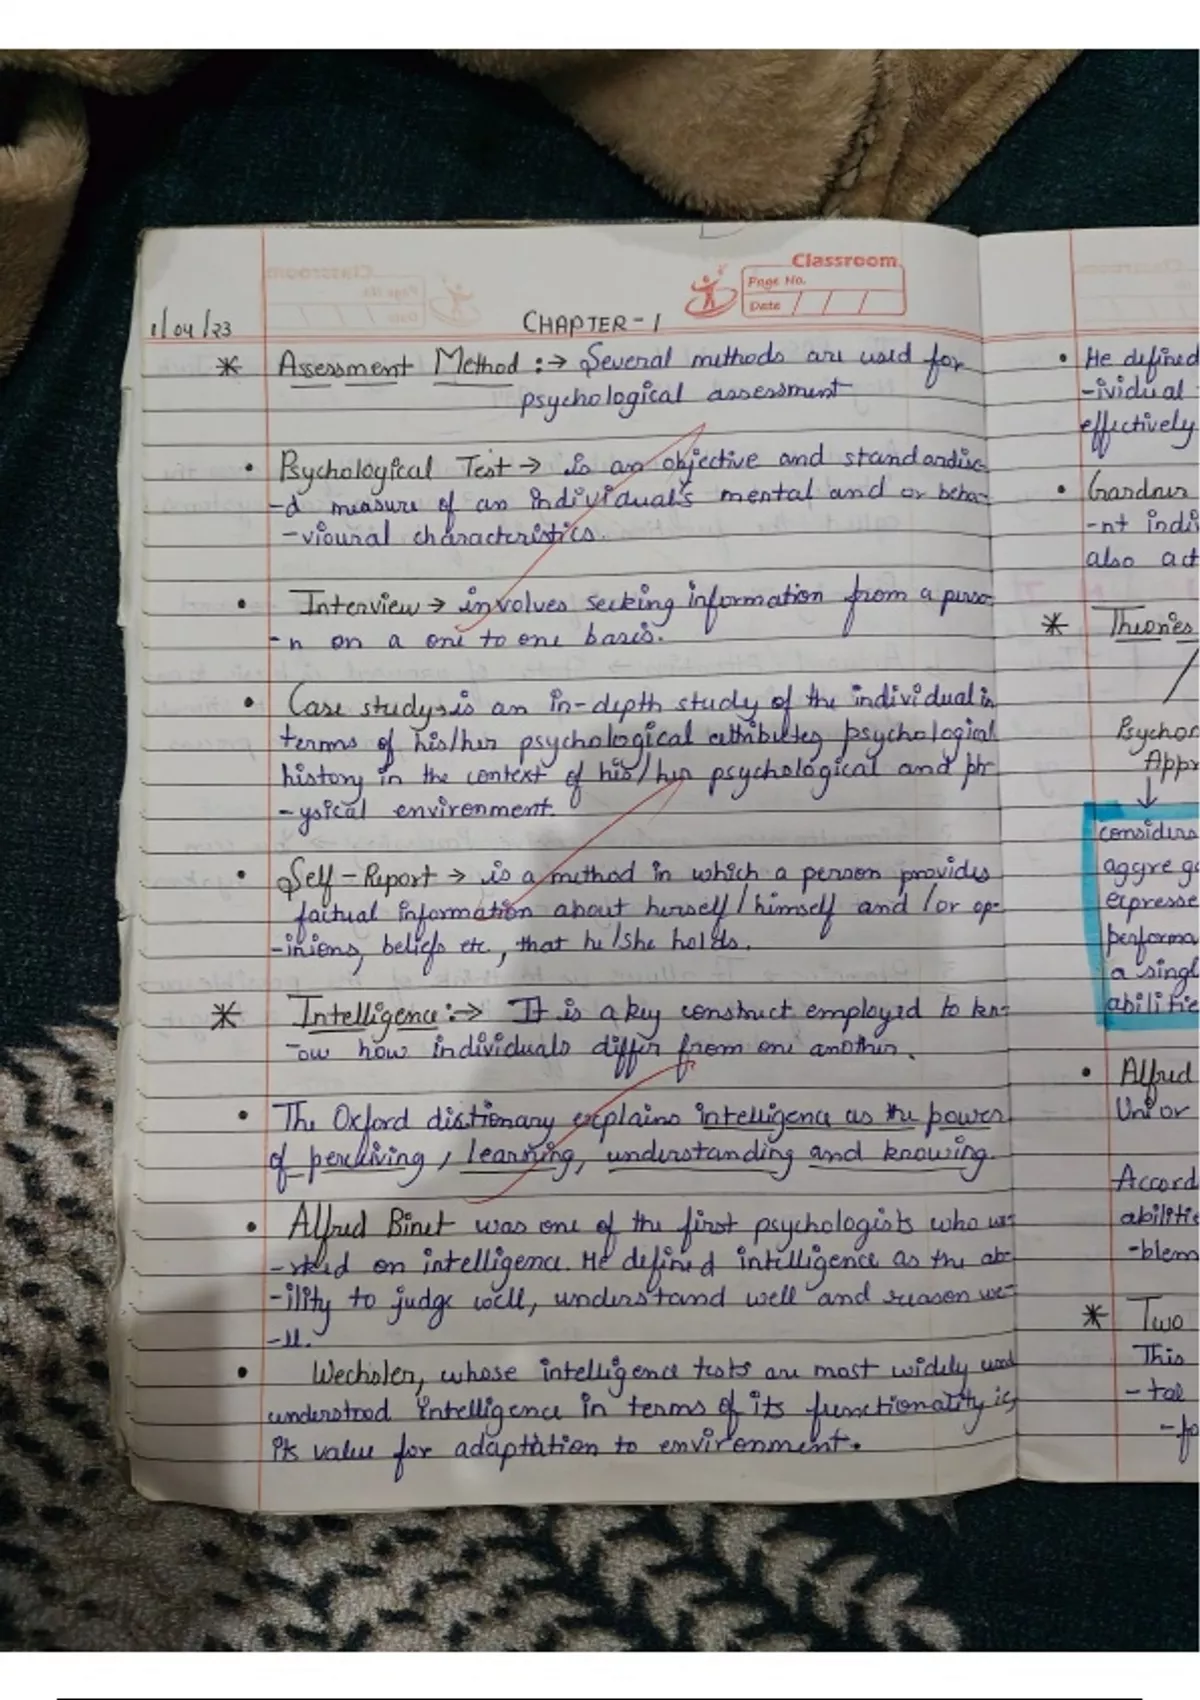 Classroom
Page No.
Date
1/04/23
CHAPTER-1
* Assessment Method :→ Several methods are used for
psychological assessment
• Psychological Test → is an objective and standardise
-d measure of an individual's mental and or beha-
-vioural characteristics.
• Interview → involves seeking information from a perso-
-n on a one to one basis.
• Case study → is an in-depth study of the individual in
terms of his/her psychological attributes, psychological
history in the context of his/her psychological and ph-
-ysical environment.
• Self-Report → is a method in which a person provides
factual information about herself/himself and /or op-
-inions, beliefs etc, that he/she holds.
* Intelligence :→ It is a key construct employed to kn-
-ow how individuals differ from one another.
• The Oxford dictionary explains intelligence as the power
of perceiving, learning, understanding and knowing.
• Alfred Binet was one of the first psychologists who wo-
-rked on intelligence. He defined intelligence as the ab-
-ility to judge well, understand well and reason we-
-ll.
• Wechsler, whose intelligence tests are most widely used
understood intelligence in terms of its functionality i.e,
its value for adaptation to environment.
• He defined
-ividual
effectively
• Gardner
-nt indi
also act
* Theories
Psychom
Appr
↓
considers
aggrega
expresse
performa
a singl
abilitie
• Alfred
Uni or
Accord
abilitie
-blem
* Two
This
-tal
-fo